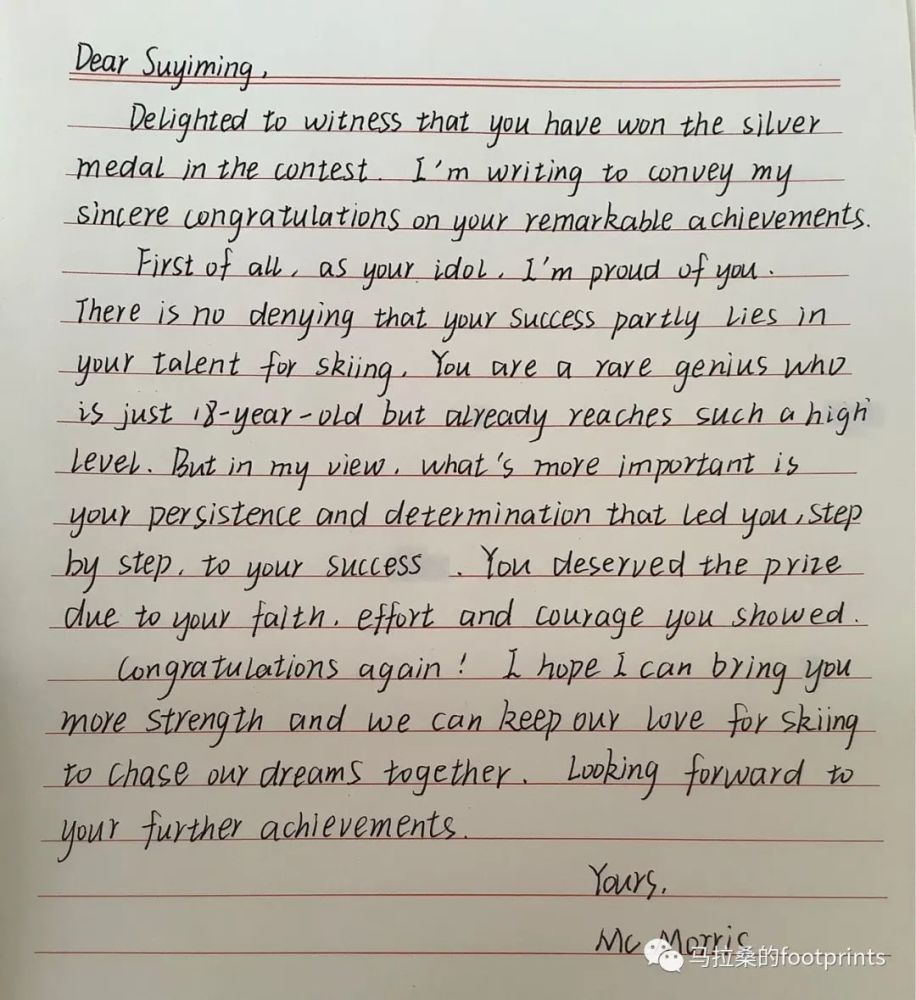 Dear Suyiming,
Delighted to witness that you have won the silver
medal in the contest. I'm writing to convey my
sincere congratulations on your remarkable achievements.
First of all, as your idol, I'm proud of you.
There is no denying that your success partly lies in
your talent for skiing. You are a rare genius who
is just 18-year-old but already reaches such a high
level. But in my view, what's more important is
your persistence and determination that led you, step
by step, to your success. You deserved the prize
due to your faith, effort and courage you showed.
Congratulations again! I hope I can bring you
more strength and we can keep our love for skiing
to chase our dreams together. Looking forward to
your further achievements.
Yours,
Mc Morris
马拉桑的footprints